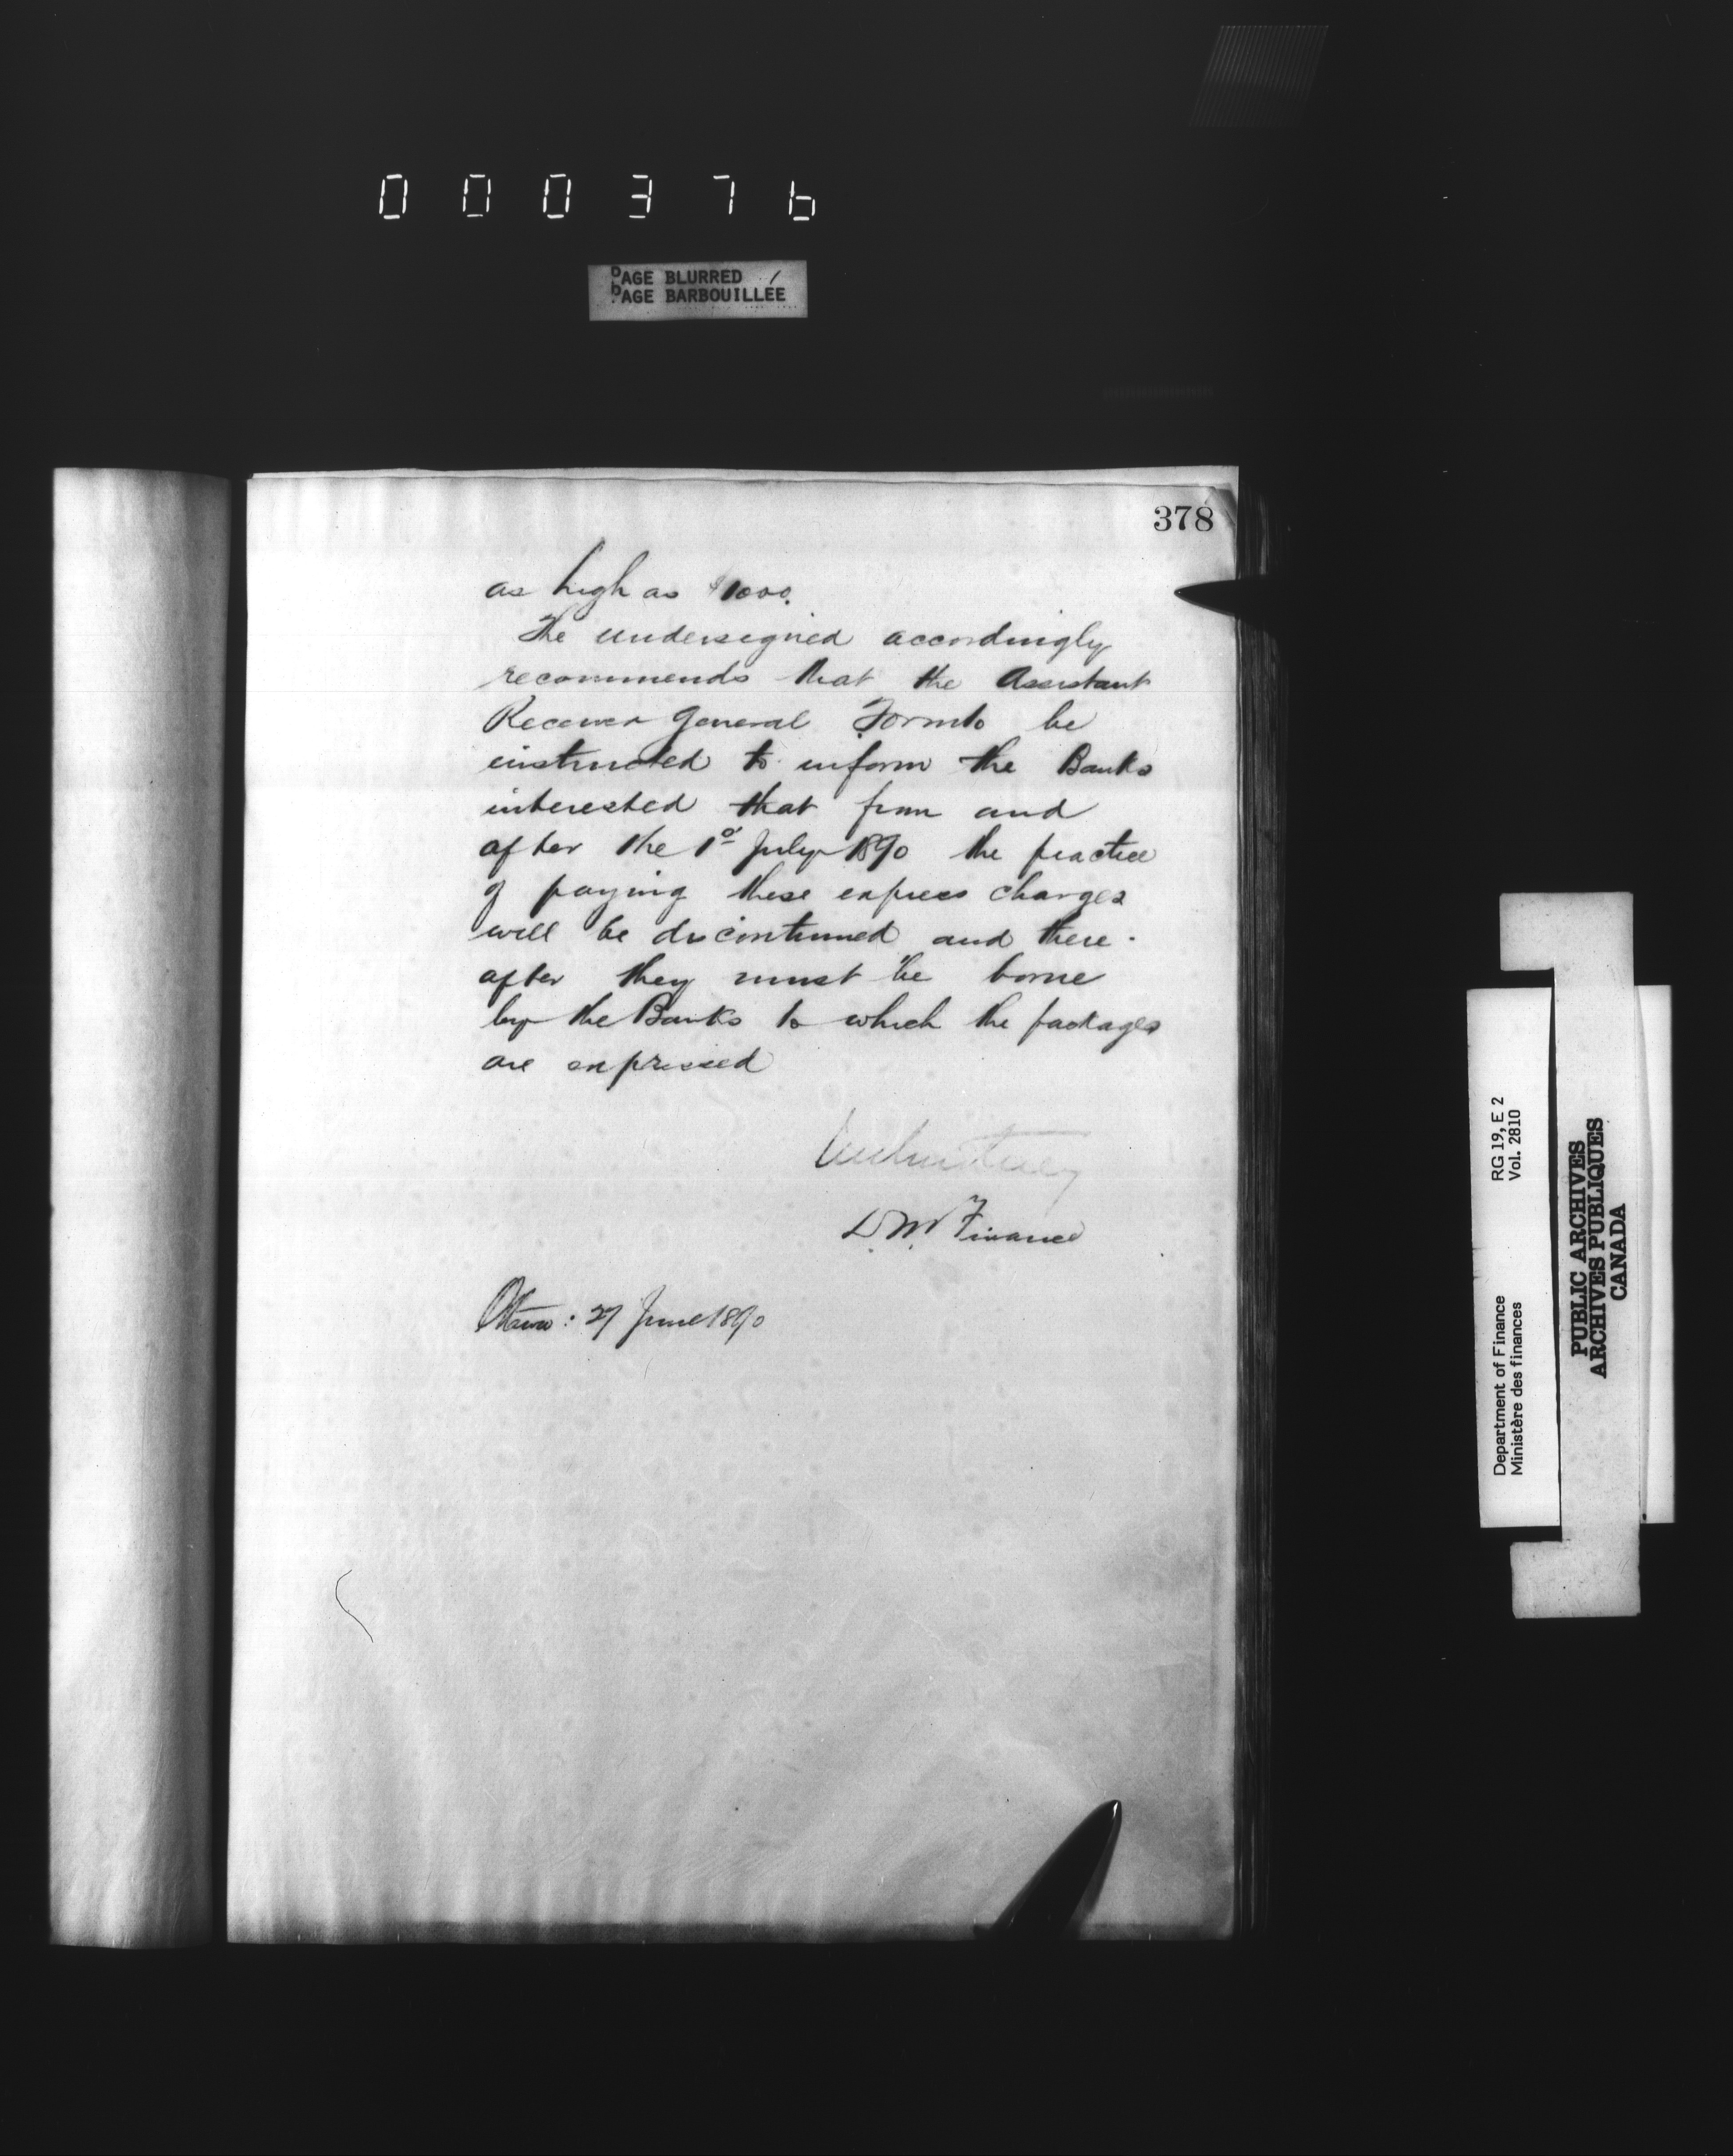 000376
PAGE BLURRED
PAGE BARBOUILLÉE
378
as high as $1000.
The undersigned accordingly
recommends that the Assistant
Receiver General Toronto be
instructed to inform the Banks
interested that from and
after the 1st July 1890 the practice
of paying these express charges
will be discontinued and there-
after they must be borne
by the Banks to which the packages
are expressed
D. M. Finance
Ottawa: 27 June 1890
RG 19, E 2
Vol. 2810
Department of Finance
Ministère des finances
PUBLIC ARCHIVES
ARCHIVES PUBLIQUES
CANADA